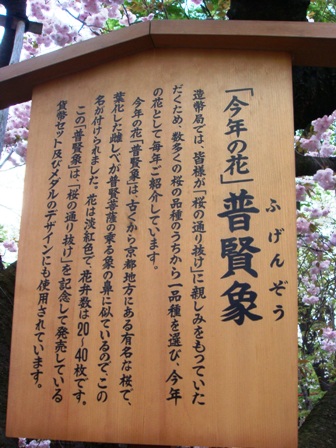 「今年の花」普賢象
ふげんぞう
造幣局では、皆様が「桜の通り抜け」に親しみをもっていた
だくため、数多くの桜の品種のうちから一品種を選び、今年
の花として毎年ご紹介しています。
今年の花「普賢象」は、古くから京都地方にある有名な桜で、
葉化した雌しべが普賢菩薩の乗る象の鼻に似ているので、この
名が付けられました。花は淡紅色で、花弁数は20～40枚です。
この「普賢象」は、「桜の通り抜け」を記念して発売している
貨幣セット及びメダルのデザインにも使用されています。